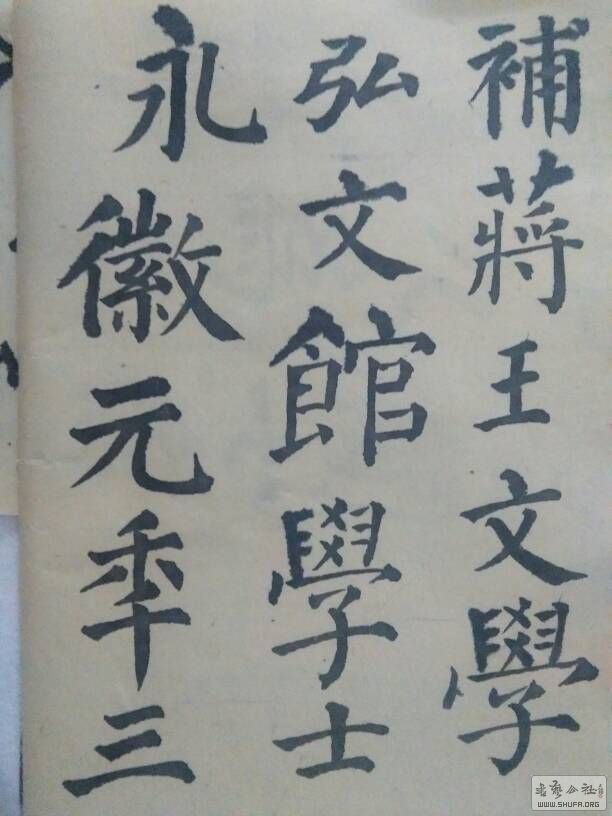 補蔣王文學
弘文館學士
永徽元秊三
书艺公社
WWW.SHUFA.ORG